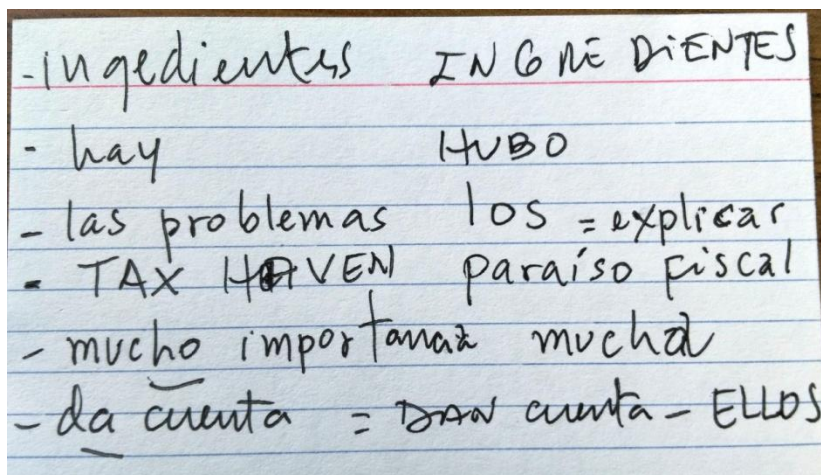 - ingedientes INGREDIENTES
- hay HUBO
- las problemas los = explicar
- TAX HAVEN paraíso fiscal
- mucho importancia mucha
- da cuenta = DAN cuenta - ELLOS